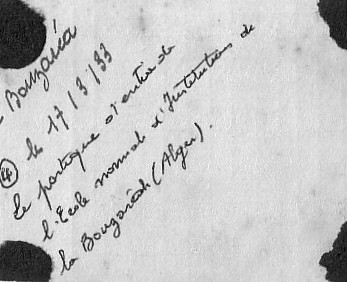 - Bouzaréa
④ le 17/3/33
Le portique d'entrée de
l'École normale d'Instituteurs de
la Bouzaréah (Alger).